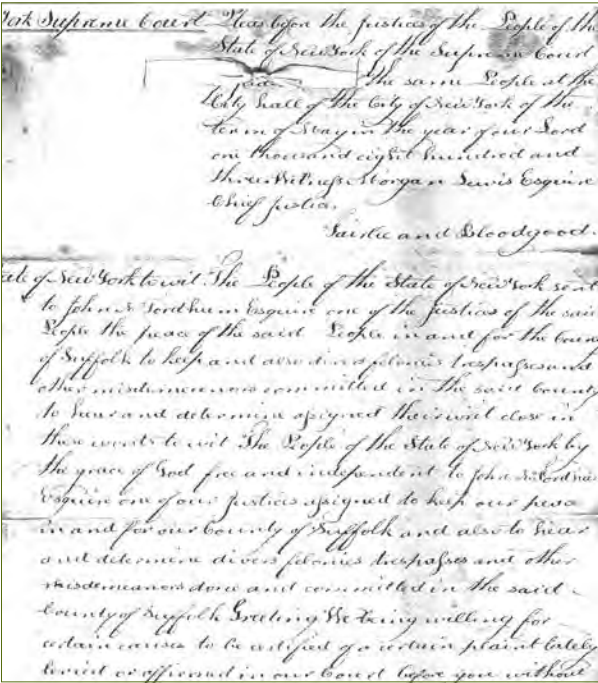 York Supreme Court Pleas before the Justices of the People of the
State of New York of the Supreme Court
the same People at the
City Hall of the City of New York of the
term of May in the year of our Lord
one thousand eight hundred and
three Witness Morgan Lewis Esquire
Chief Justice.
Fairlie and Bloodgood.
State of New York to wit. The People of the State of New York sent
to John N Fordham Esquire one of the Justices of the said
People the peace of the said People in and for the County
of Suffolk to keep and also divers felonies trespasses and
other misdemeanors committed in the said County
to hear and determine assigned their writ close in
these words to wit The People of the State of New York by
the grace of God free and independent to John N Fordham
Esquire one of our Justices assigned to keep our peace
in and for our County of Suffolk and also to hear
and determine divers felonies trespasses and other
misdemeanors done and committed in the said
County of Suffolk Greeting We being willing for
certain causes to be certified of a certain plaint lately
levied or affirmed in our Court before you without